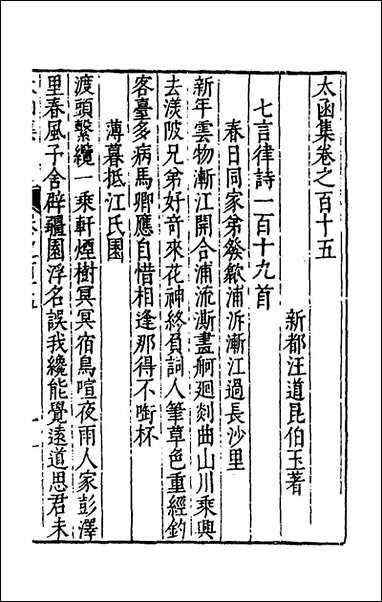 太函集卷之百十五
新都汪道昆伯玉著
七言律詩一百十九首
春日同家弟發歙浦泝漸江過長沙里
新年雲物漸江開合浦流澌畫舸廻剡曲山川乘興
去渼陂兄弟好奇來花神終負詞人筆草色重經釣
客臺多病馬卿應自惜相逢那得不㗸杯
薄暮抵江氏園
渡頭繫纜一乘軒煙樹冥冥宿鳥喧夜雨人家彭澤
里春風子舍辟疆園浮名誤我纔能覺遠道思君未